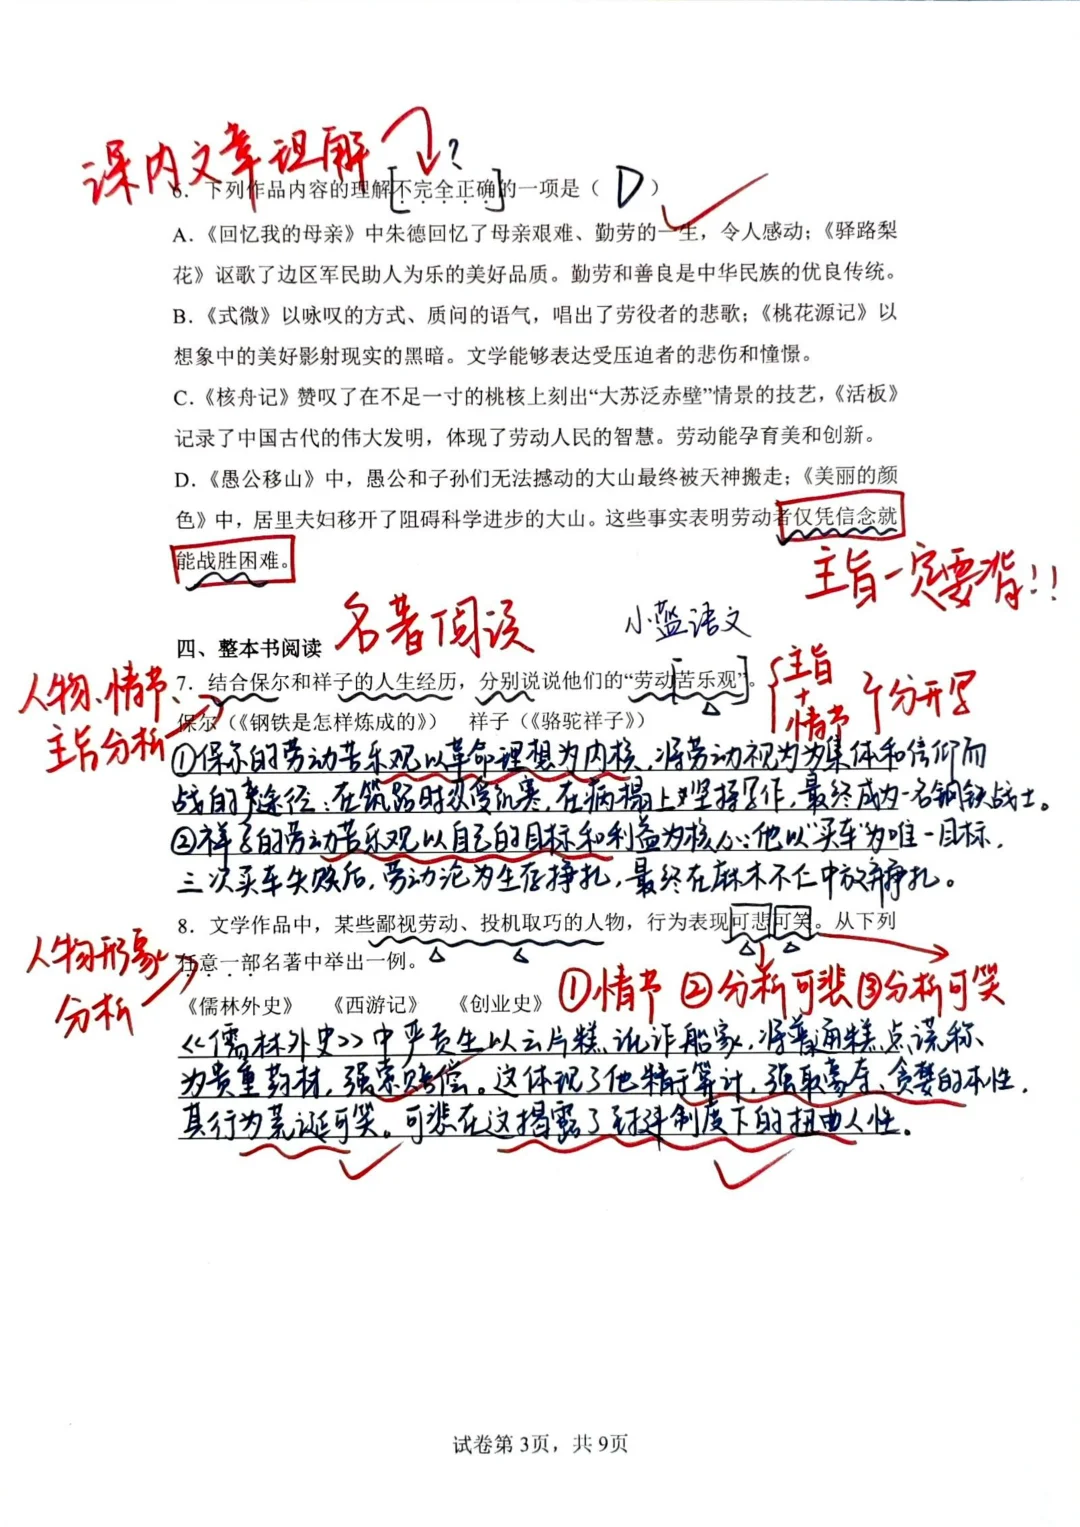 课内文章理解
?
6．下列作品内容的理解[不完全正确]的一项是（ D ）
A.《回忆我的母亲》中朱德回忆了母亲艰难、勤劳的一生，令人感动；《驿路梨
花》讴歌了边区军民助人为乐的美好品质。勤劳和善良是中华民族的优良传统。
B.《式微》以咏叹的方式、质问的语气，唱出了劳役者的悲歌；《桃花源记》以
想象中的美好影射现实的黑暗。文学能够表达受压迫者的悲伤和憧憬。
C.《核舟记》赞叹了在不足一寸的桃核上刻出“大苏泛赤壁”情景的技艺，《活板》
记录了中国古代的伟大发明，体现了劳动人民的智慧。劳动能孕育美和创新。
D.《愚公移山》中，愚公和子孙们无法撼动的大山最终被天神搬走；《美丽的颜
色》中，居里夫妇移开了阻碍科学进步的大山。这些事实表明劳动者仅凭信念就
能战胜困难。
主旨一定要背!!
四、整本书阅读
名著阅读
小蓝语文
人物、情节、
主旨分析
7．结合保尔和祥子的人生经历，分别说说他们的“劳动[苦乐观]”。
主旨
+
情节
分开写
保尔（《钢铁是怎样炼成的》） 祥子（《骆驼祥子》）
①保尔的劳动苦乐观以革命理想为内核，将劳动视为为集体和信仰而
战的途径：在筑路时忍受饥寒，在病榻上坚持写作，最终成为一名钢铁战士。
②祥子的劳动苦乐观以自己的目标和利益为核心：他以“买车”为唯一目标，
三次买车失败后，劳动沦为生存挣扎，最终在麻木不仁中放弃挣扎。
人物形象
分析
8．文学作品中，某些鄙视劳动、投机取巧的人物，行为表现可悲可笑。从下列
任意一部名著中举出一例。
①情节 ②分析可悲 ③分析可笑
《儒林外史》 《西游记》 《创业史》
《儒林外史》中严贡生以云片糕讹诈船家，将普通糕点谎称
为贵重药材，强索赔偿。这体现了他精于算计，强取豪夺、贪婪的本性，
其行为荒诞可笑。可悲在这揭露了封建制度下的扭曲人性。
试卷第 3页，共 9页